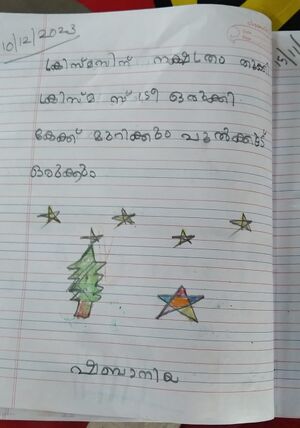 10/12/2023
ക്രിസ്മസിന് നക്ഷത്രം തൂക്കി
ക്രിസ്മസ് ട്രീ ഒരുക്കി
കേക്ക് മുറിക്കും പുൽക്കൂട്
ഒരുക്കും